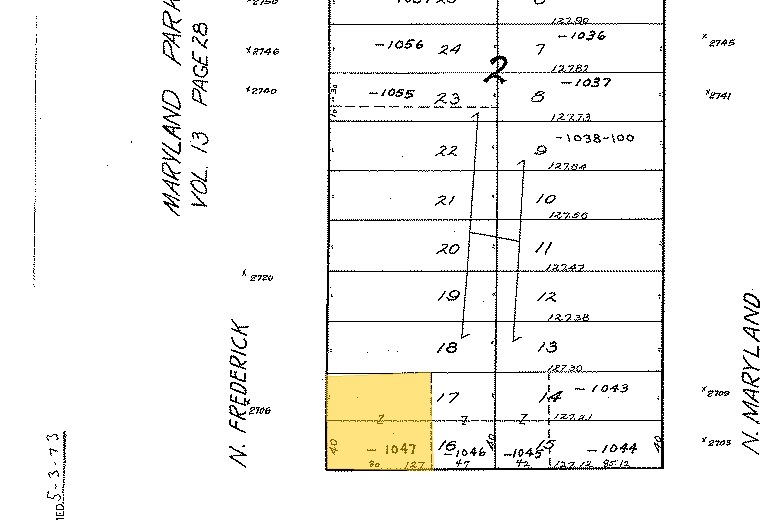 MARYLAND PARK
VOL. 13 PAGE 28
127.90
×2746
-1056 24
7 -1036
×2745
2
127.82
×2740
-1055 23
8 -1037
×2741
127.73
22
9 -1038-100
127.64
21
10
127.56
20
11
127.47
×2720
19
12
127.38
18
13
127.30
N. FREDERICK
N. MARYLAND
17
14 -1043
×2709
×2706
Z Z Z 127.21
40
-1047
16
-1046
40
-1045
15
-1044
40
×2703
80 127
47
42
127.12 85.12
5-3-73